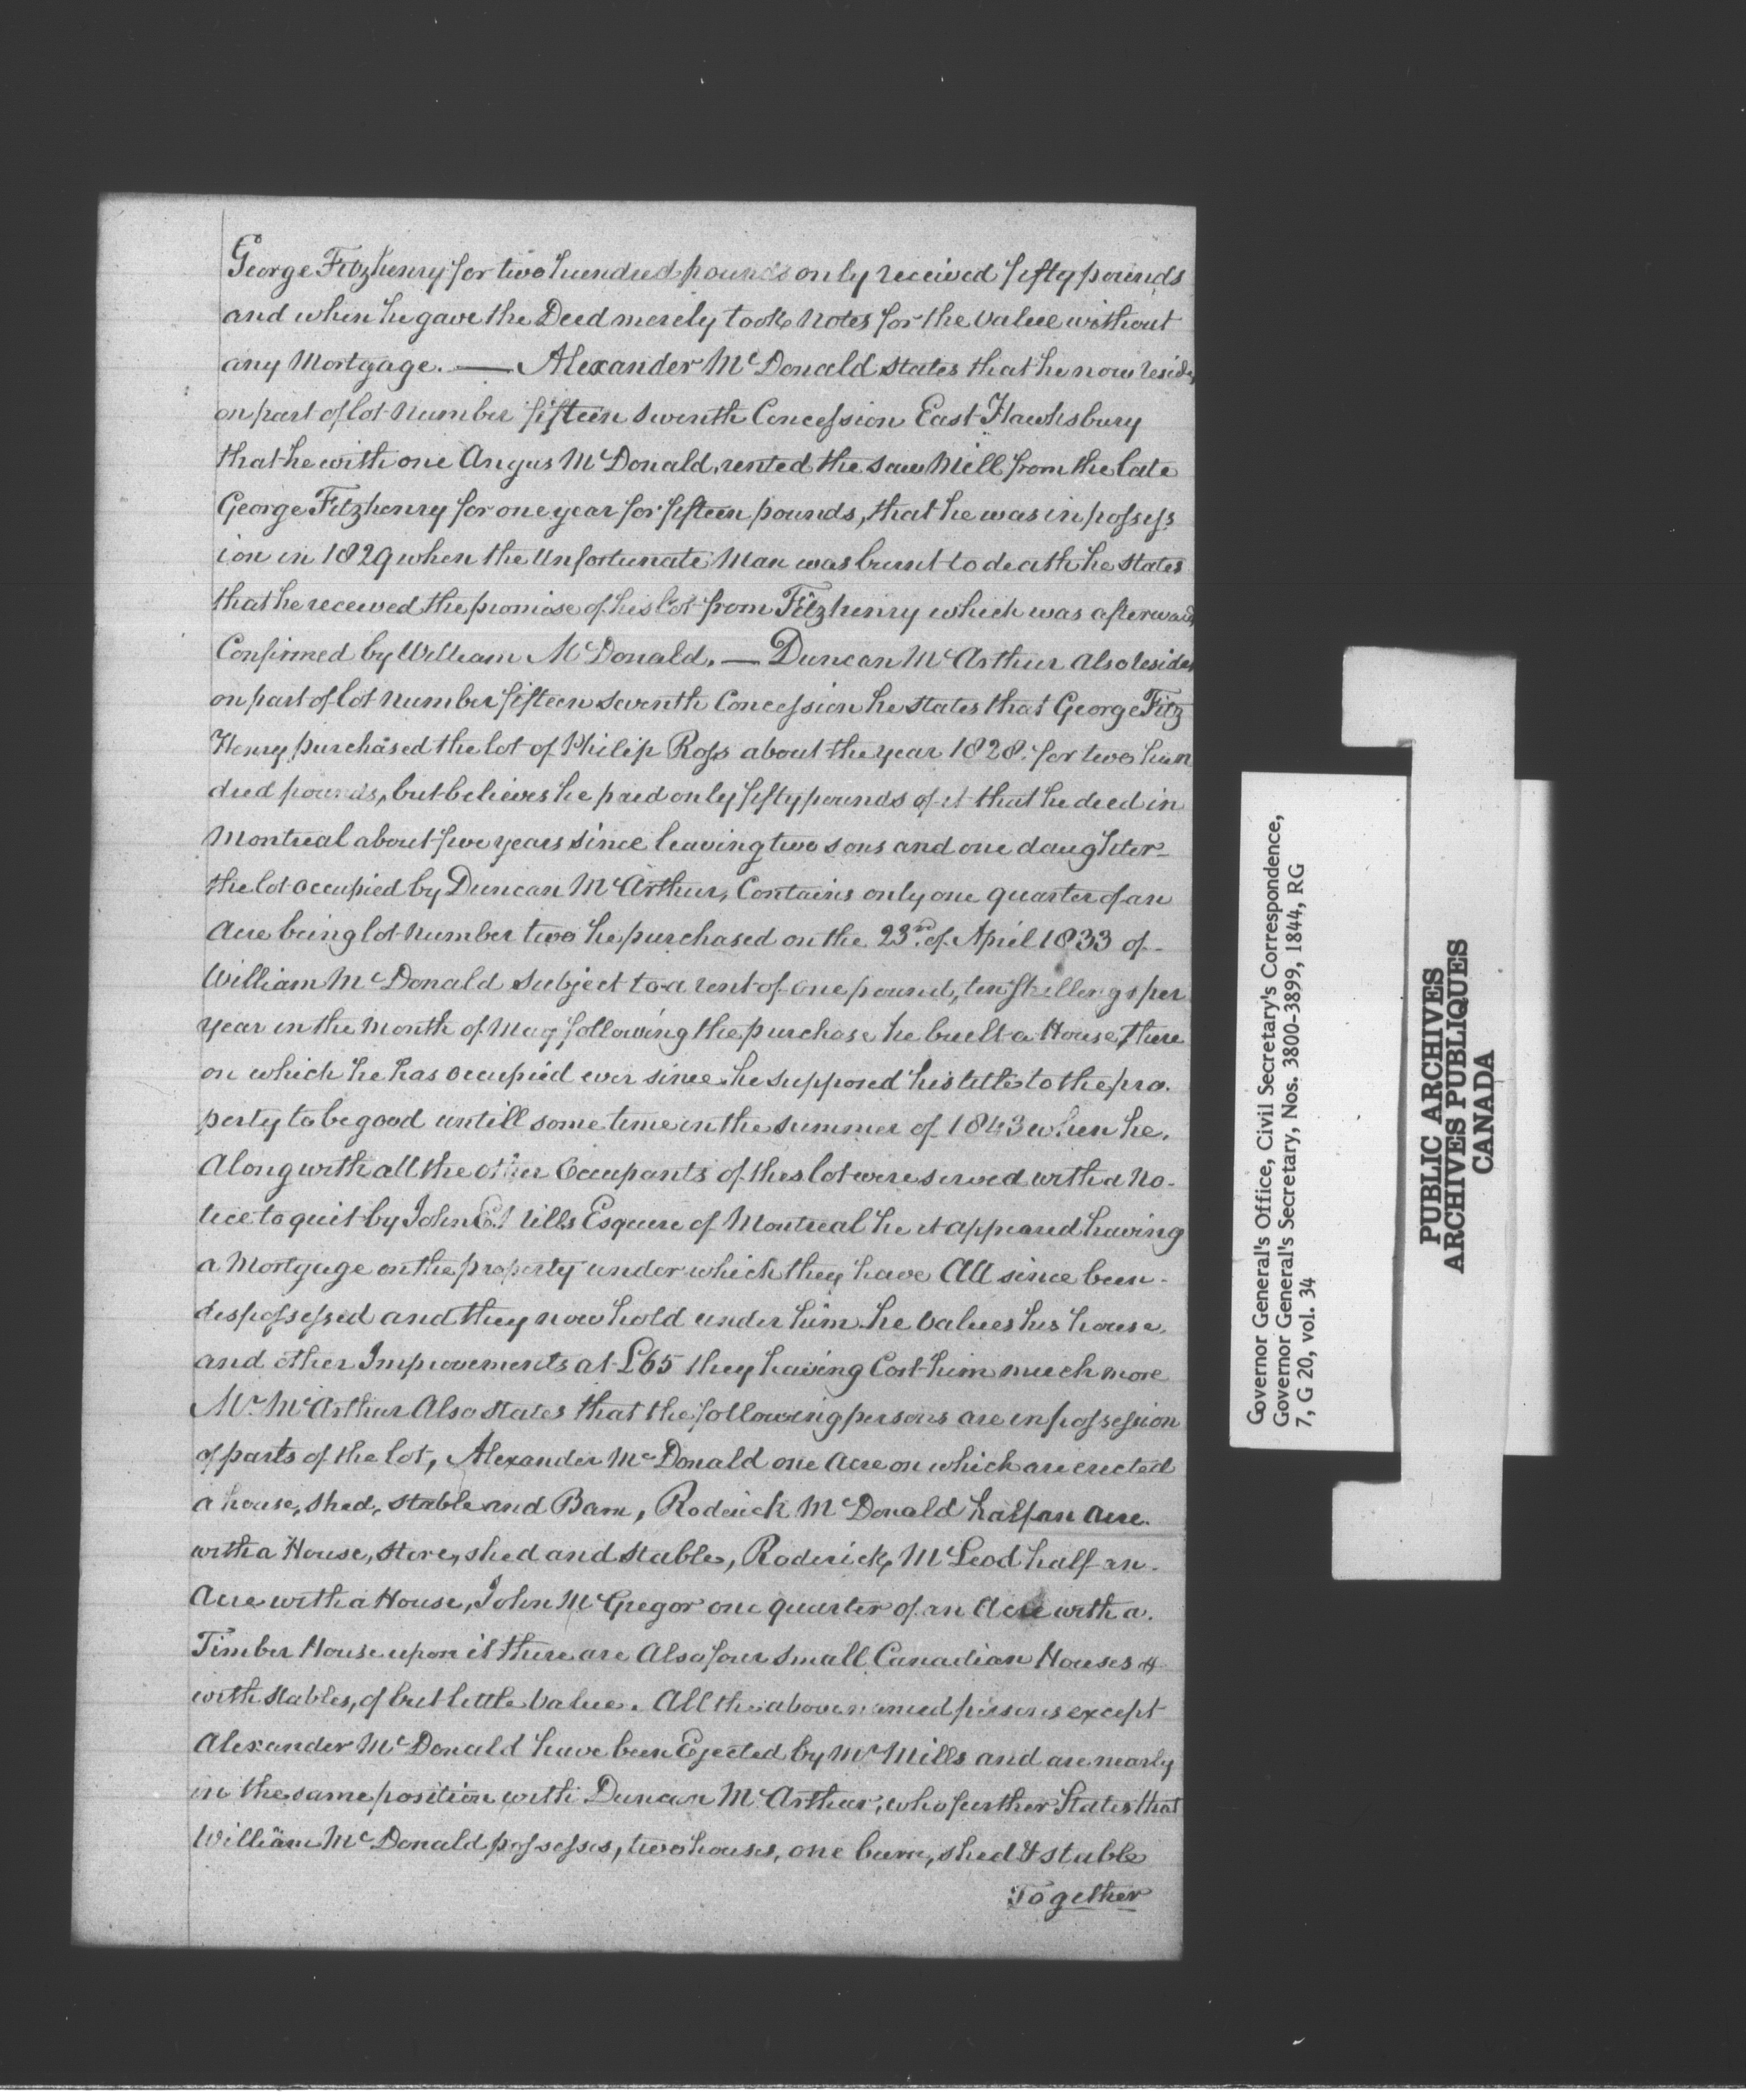 George Fitzhenry for two hundred pounds only received fifty pounds
and when he gave the Deed merely took Notes for the Value without
any Mortgage. — Alexander McDonald states that he now resides
on part of lot number fifteen Seventh Concession East Hawksbury
that he with one Angus McDonald, rented the Saw Mill from the late
George Fitzhenry for one year for fifteen pounds, that he was in possess
ion in 1829 when the Unfortunate Man was burnt to death he states
that he received the promise of his lot from Fitzhenry which was afterwards
Confirmed by William McDonald. — Duncan McArthur also resides
on part of lot number fifteen seventh Concession he states that George Fitz
Henry purchased the lot of Philip Ross about the year 1828. for two hun
dred pounds, but believes he paid only fifty pounds of it that he died in
Montreal about five years since leaving two sons and one daughter–
the lot occupied by Duncan McArthur, Contains only one quarter of an
Acre being lot number two he purchased on the 23rd of April 1833 of–
William McDonald subject to a rent of one pound, ten Shillings per
year in the Month of May following the purchase he built a House, there
on which he has occupied ever since he supposed his title to the pro.
perty to be good untill some time in the summer of 1843 when he,
Along with all the other Occupants of the lot were served with a No-
tice to quit by John E. Mills Esquire of Montreal he it appeared having
a Mortgage on the property under which they have All since been–
dispossessed and they now hold under him he Values his house,
and other Improvements at £65 they having Cost him much more
Mr. McArthur Also states that the following persons are in possession
of parts of the lot, Alexander McDonald one Acre on which are erected
a house, shed, stable and Barn, Roderick McDonald half an Acre.
with a House, store, shed and stable, Roderick McLeod half an–
Acre with a House, John McGregor one quarter of an Acre with a.
Timber House upon it there are Also four small Canadian Houses &
with stables, of but little Value. All the above named persons except
Alexander McDonald have been Ejected by Mr Mills and are nearly
in the same position with Duncan McArthur, who further States that
William McDonald possesses, two houses, one barn, shed & stable
Together
Governor General's Office, Civil Secretary's Correspondence,
Governor General's Secretary, Nos. 3800-3899, 1844, RG
7, G 20, vol. 34
PUBLIC ARCHIVES
ARCHIVES PUBLIQUES
CANADA